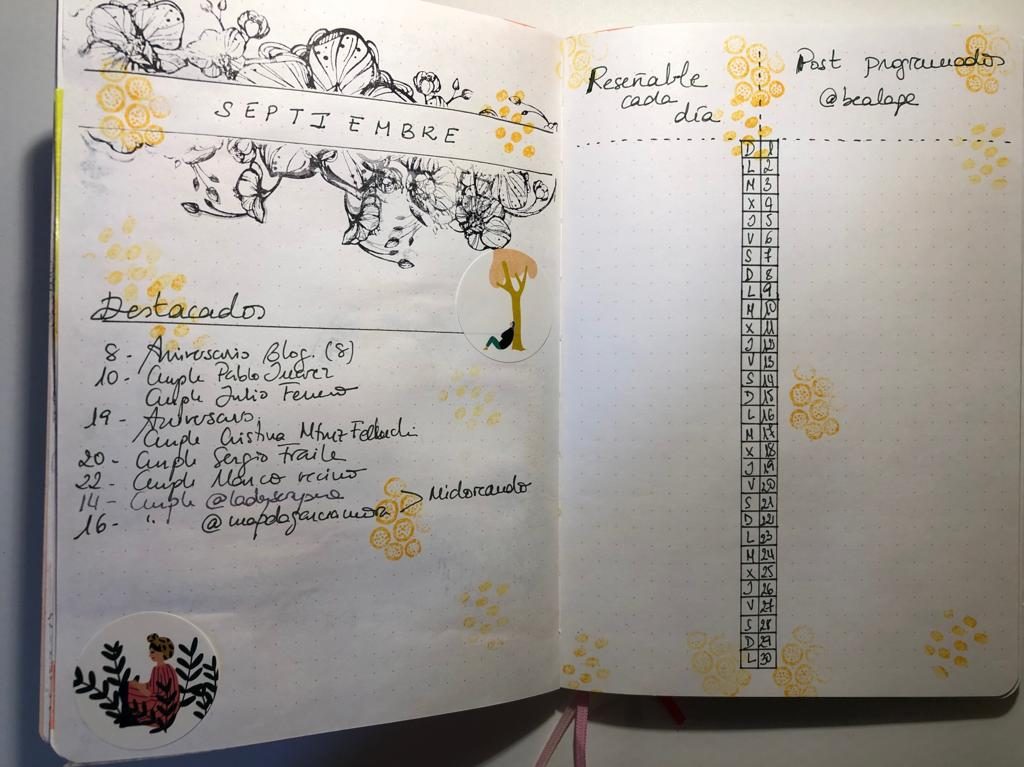 SEPTIEMBRE
Destacados
8 - Aniversario Blog. (8)
10 - Cumple Pablo Juárez
Cumple Julio Ferrero
19 - Aniversario.
Cumple Cristina Mtnez
20 - Cumple Sergio Fraile
22 - Cumple Marco vecino
14 - Cumple
16 - " @magdagarciamora > Midorcando
Reseñable
cada
día
Post programados
@bealape
D 1
L 2
M 3
X 4
J 5
V 6
S 7
D 8
L 9
M 10
X 11
J 12
V 13
S 14
D 15
L 16
M 17
X 18
J 19
V 20
S 21
D 22
L 23
M 24
X 25
J 26
V 27
S 28
D 29
L 30